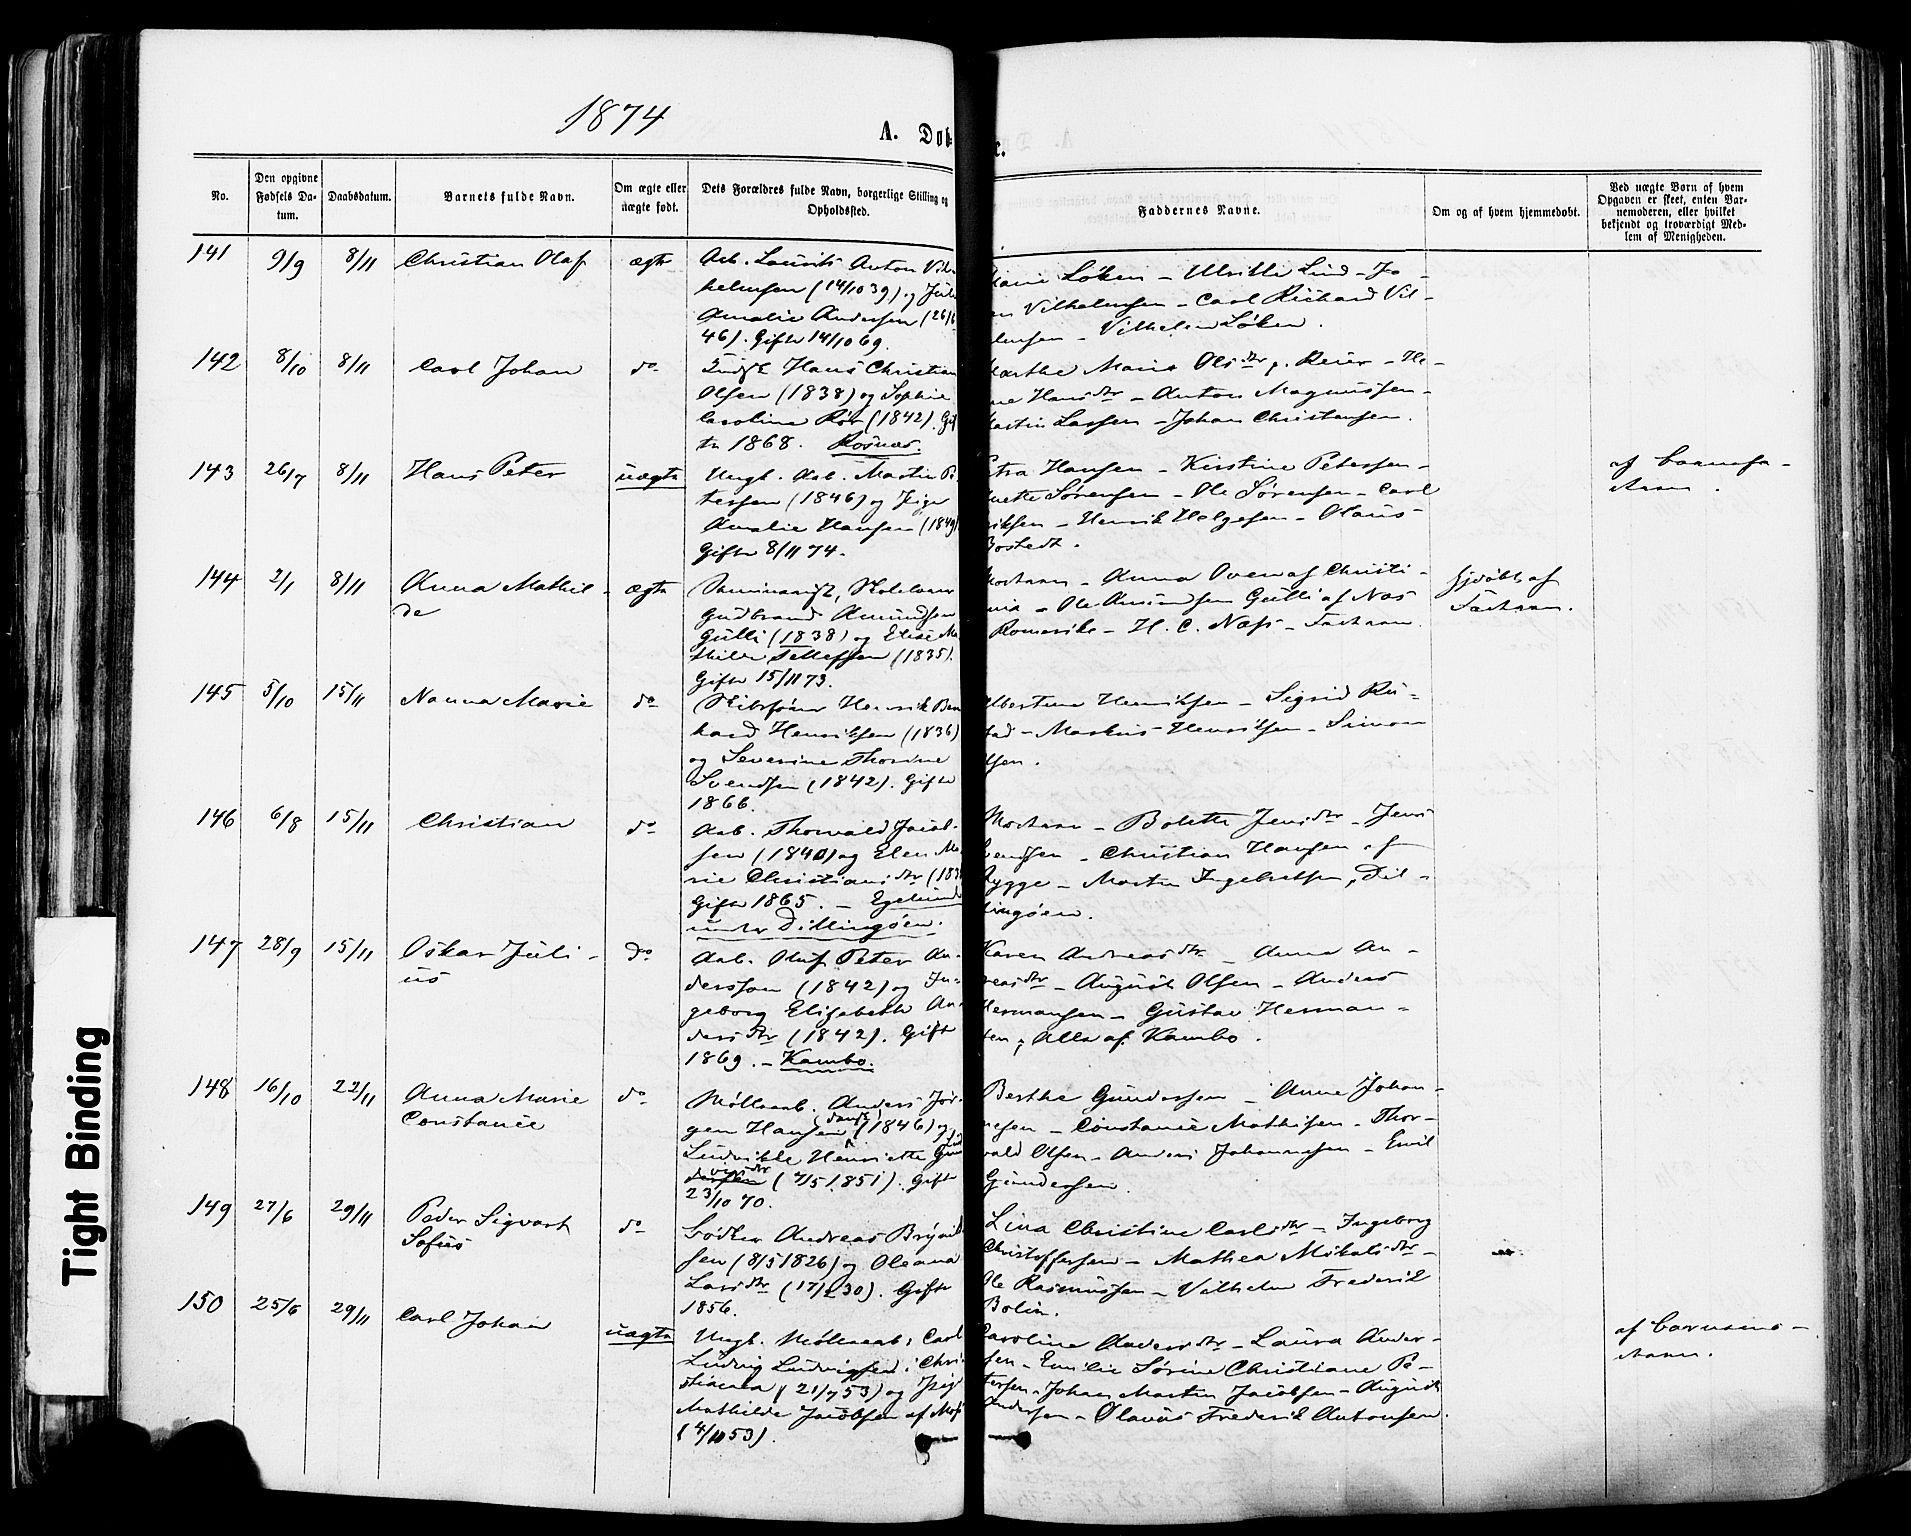 1874
A. Døb
e.
No.
Den opgivne Fødsels Da-tum.
Daabsdatum.
Barnets fulde Navn.
Om ægte eller uægte født.
Dets Forældres fulde Navn, borgerlige Stilling og Opholdssted.
Faddernes Navne.
Om og af hvem hjemmedøbt.
Ved uægte Børn af hvem Opgaven er skeet, enten Bar-nemoderen, eller hvilket bekjendt og troværdigt Med-lem af Menigheden.
141 9/9 8/11 Christian Olaf ægte
Arb. Laurits Anton Vil-
helmsen (14/10 39) og Juli
Amalie Andersen (26/6
46). Gifte 14/10 69.
Løken - Ulrikke Lind - Jo-
Vilhelmsen - Carl Richard Vil-
- Vilhelm Løken.
142 8/10 8/11 Carl Johan do
Hans Christian
Olsen (1838) og Sophie
Caroline (1842). Gif
te 1868. Rosnæs.
Marthe Maria Olsdtr - He-
ne Hansdtr - Anton Magnussen -
Martin Larsen - Johan Christensen.
143 26/7 8/11 Hans Peter uægte
Ungk. Aab. Martin Pe
tersen (1846) og Pige
Amalie Hansen (1849)
Gifte 8/11 74.
Petra Hansen - Kirstine Petersen -
Sørensen - Ole Sørensen - Carl
- Henrik Helgesen - Olaus
Bostedt.
af Barnefa-
deren.
144 2/1 8/11 Anna Mathil-
de
ægte
Seminarist, Skolelærer
Gudbrand Amundsen
Gulli (1838) og Elise Ma
thilde Tellefsen (1835).
Gifte 15/11 73.
Moderen - Anna Oven af Christi-
ania - Ole Amundsen Gulli af Næs
Romerike - H. C. Næss - Faderen.
hjdøbt af
Faderen.
145 5/10 15/11 Nanna Marie do
Skibsfører Henrik Bern
hard Henriksen (1836)
og Severine Thorine
Svendsen (1842). Gifte
1866.
Albertine Henriksen - Sigrid Ru-
stad - Markus Henriksen - Simon
Olsen.
146 6/8 15/11 Christian do
Aab. Thorvald Jacob-
sen (1840) og Elen Ma
rie Christiansdtr (183
Gifte 1865. - Egelund
under Dillingøen.
Moderen - Bolette Jensdtr - Jens
Svendsen - Christian Hansen af
Rygge - Martin Ingebretsen, Dil-
lingøen.
147 28/9 15/11 Oskar Juli-
us
do
Aab. Oluf Peter An-
dersson (1842) og In-
geborg Elizabeth An-
dersdtr (1842). Gifte
1869. - Kambo.
Karen Andreasdtr - Anna An-
dreasdtr - August Olsen - Anders
Hermansen - Gustav Herman-
sen, Alle af Kambo.
148 16/10 22/11 Anna Marie
Constance
do
Møllearb. Anders Jør-
gen Hansen (dansk) (1846) og
Ludvikke Henriette Gun
dersen (2/5 1851). Gifte
23/10 70.
Berthe Gundersen - Anne Johan-
nesen - Constance Mathisen - Thor-
vald Olsen - Anders Johannesen - Emil
Gundersen.
149 27/6 29/11 Peder Sigvart
Sofus
do
Bødker Andreas Brynild
sen (8/5 1826) og Oleana
Larsdtr (17/2 30). Gifte
1856.
Lina Christine Carlsdtr - Ingeborg
Christoffersen - Mathea Mikalsdtr -
Ole Rasmussen - Vilhelm Frederik
Bolin.
150 25/6 29/11 Carl Johan uægte
Ungk. Møllearb. Carl
Ludvig Ludvigsen i Chri
stiania (21/7 53) og Pige
Mathilde Jacobsen af Moss
(4/11 53).
Caroline Andersdtr - Laura Ander-
sen - Emilie Sørine Christiane Pe-
tersen - Johan Martin Jacobsen - August
Andersen - Olavus Frederik Antonsen.
af Barnemo-
deren.
Tight Binding